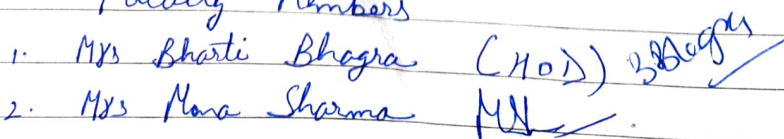 Faculty Members
1. Mrs Bharti Bhagra (HOD)
2. Mrs Mona Sharma